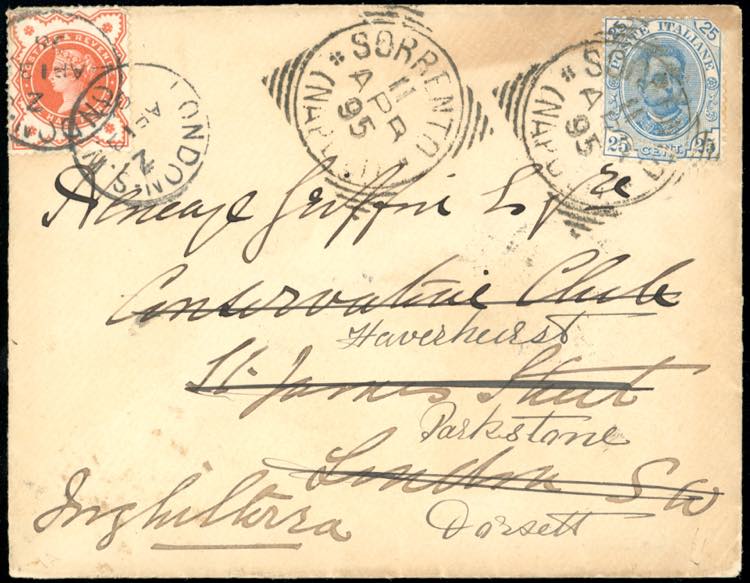 POSTAGE & REVENUE
HALF
LONDON S.W.
AP 1
Z
LONDON S.W.
AP 1
Z
SORRENTO
11
APR
95
(NAPOLI)
SORRENTO
11
APR
95
(NAPOLI)
25 25
POSTE ITALIANE
25 CENT. 25
Heneage Griffin Esqre
Conservative Club
Haverhurst
St. James Street
Parkstone
London SW
Inghilterra
Dorsett